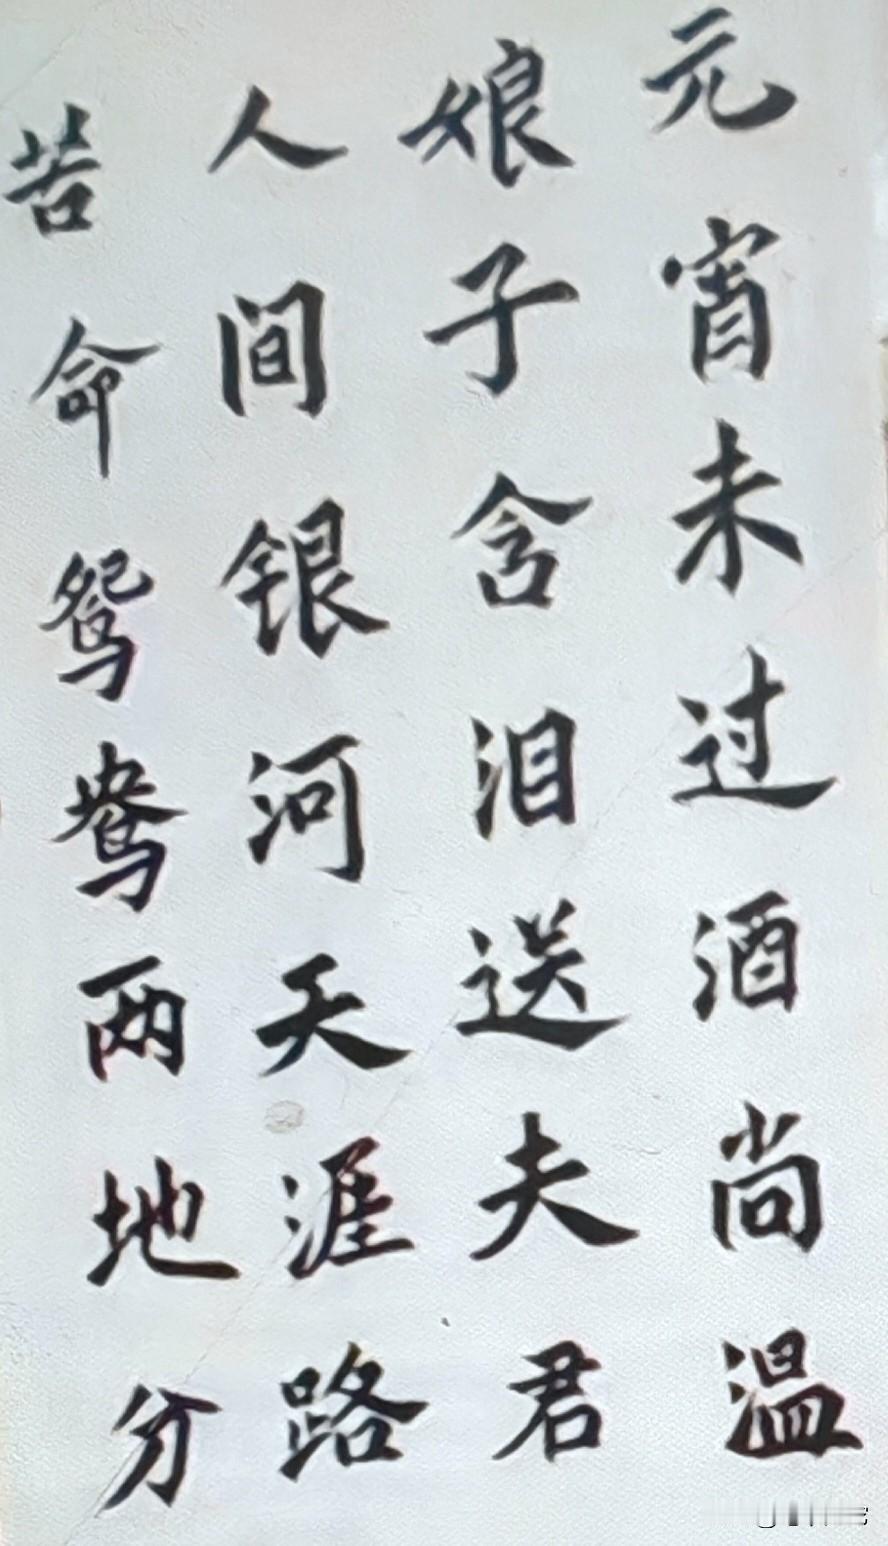 元宵未过酒尚温
娘子含泪送夫君
人间银河天涯路
苦命鸳鸯两地分